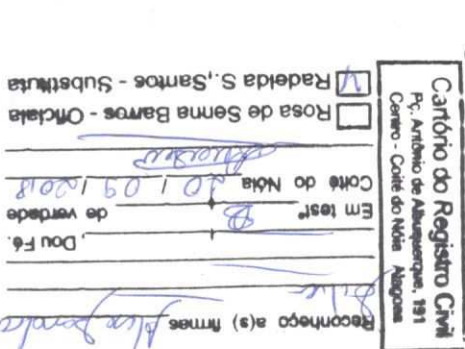 Cartório do Registro Civil
Pç. Antônio de Albuquerque, 191
Centro - Coité do Nóia Alagoas
Reconheço a(s) firmas
Silva
, Dou Fé.
Em testº de verdade
Coité do Nóia 20 / 09 / 2018
Rosa de Senna Barros - Oficiala
Radelda S. Santos - Substituta